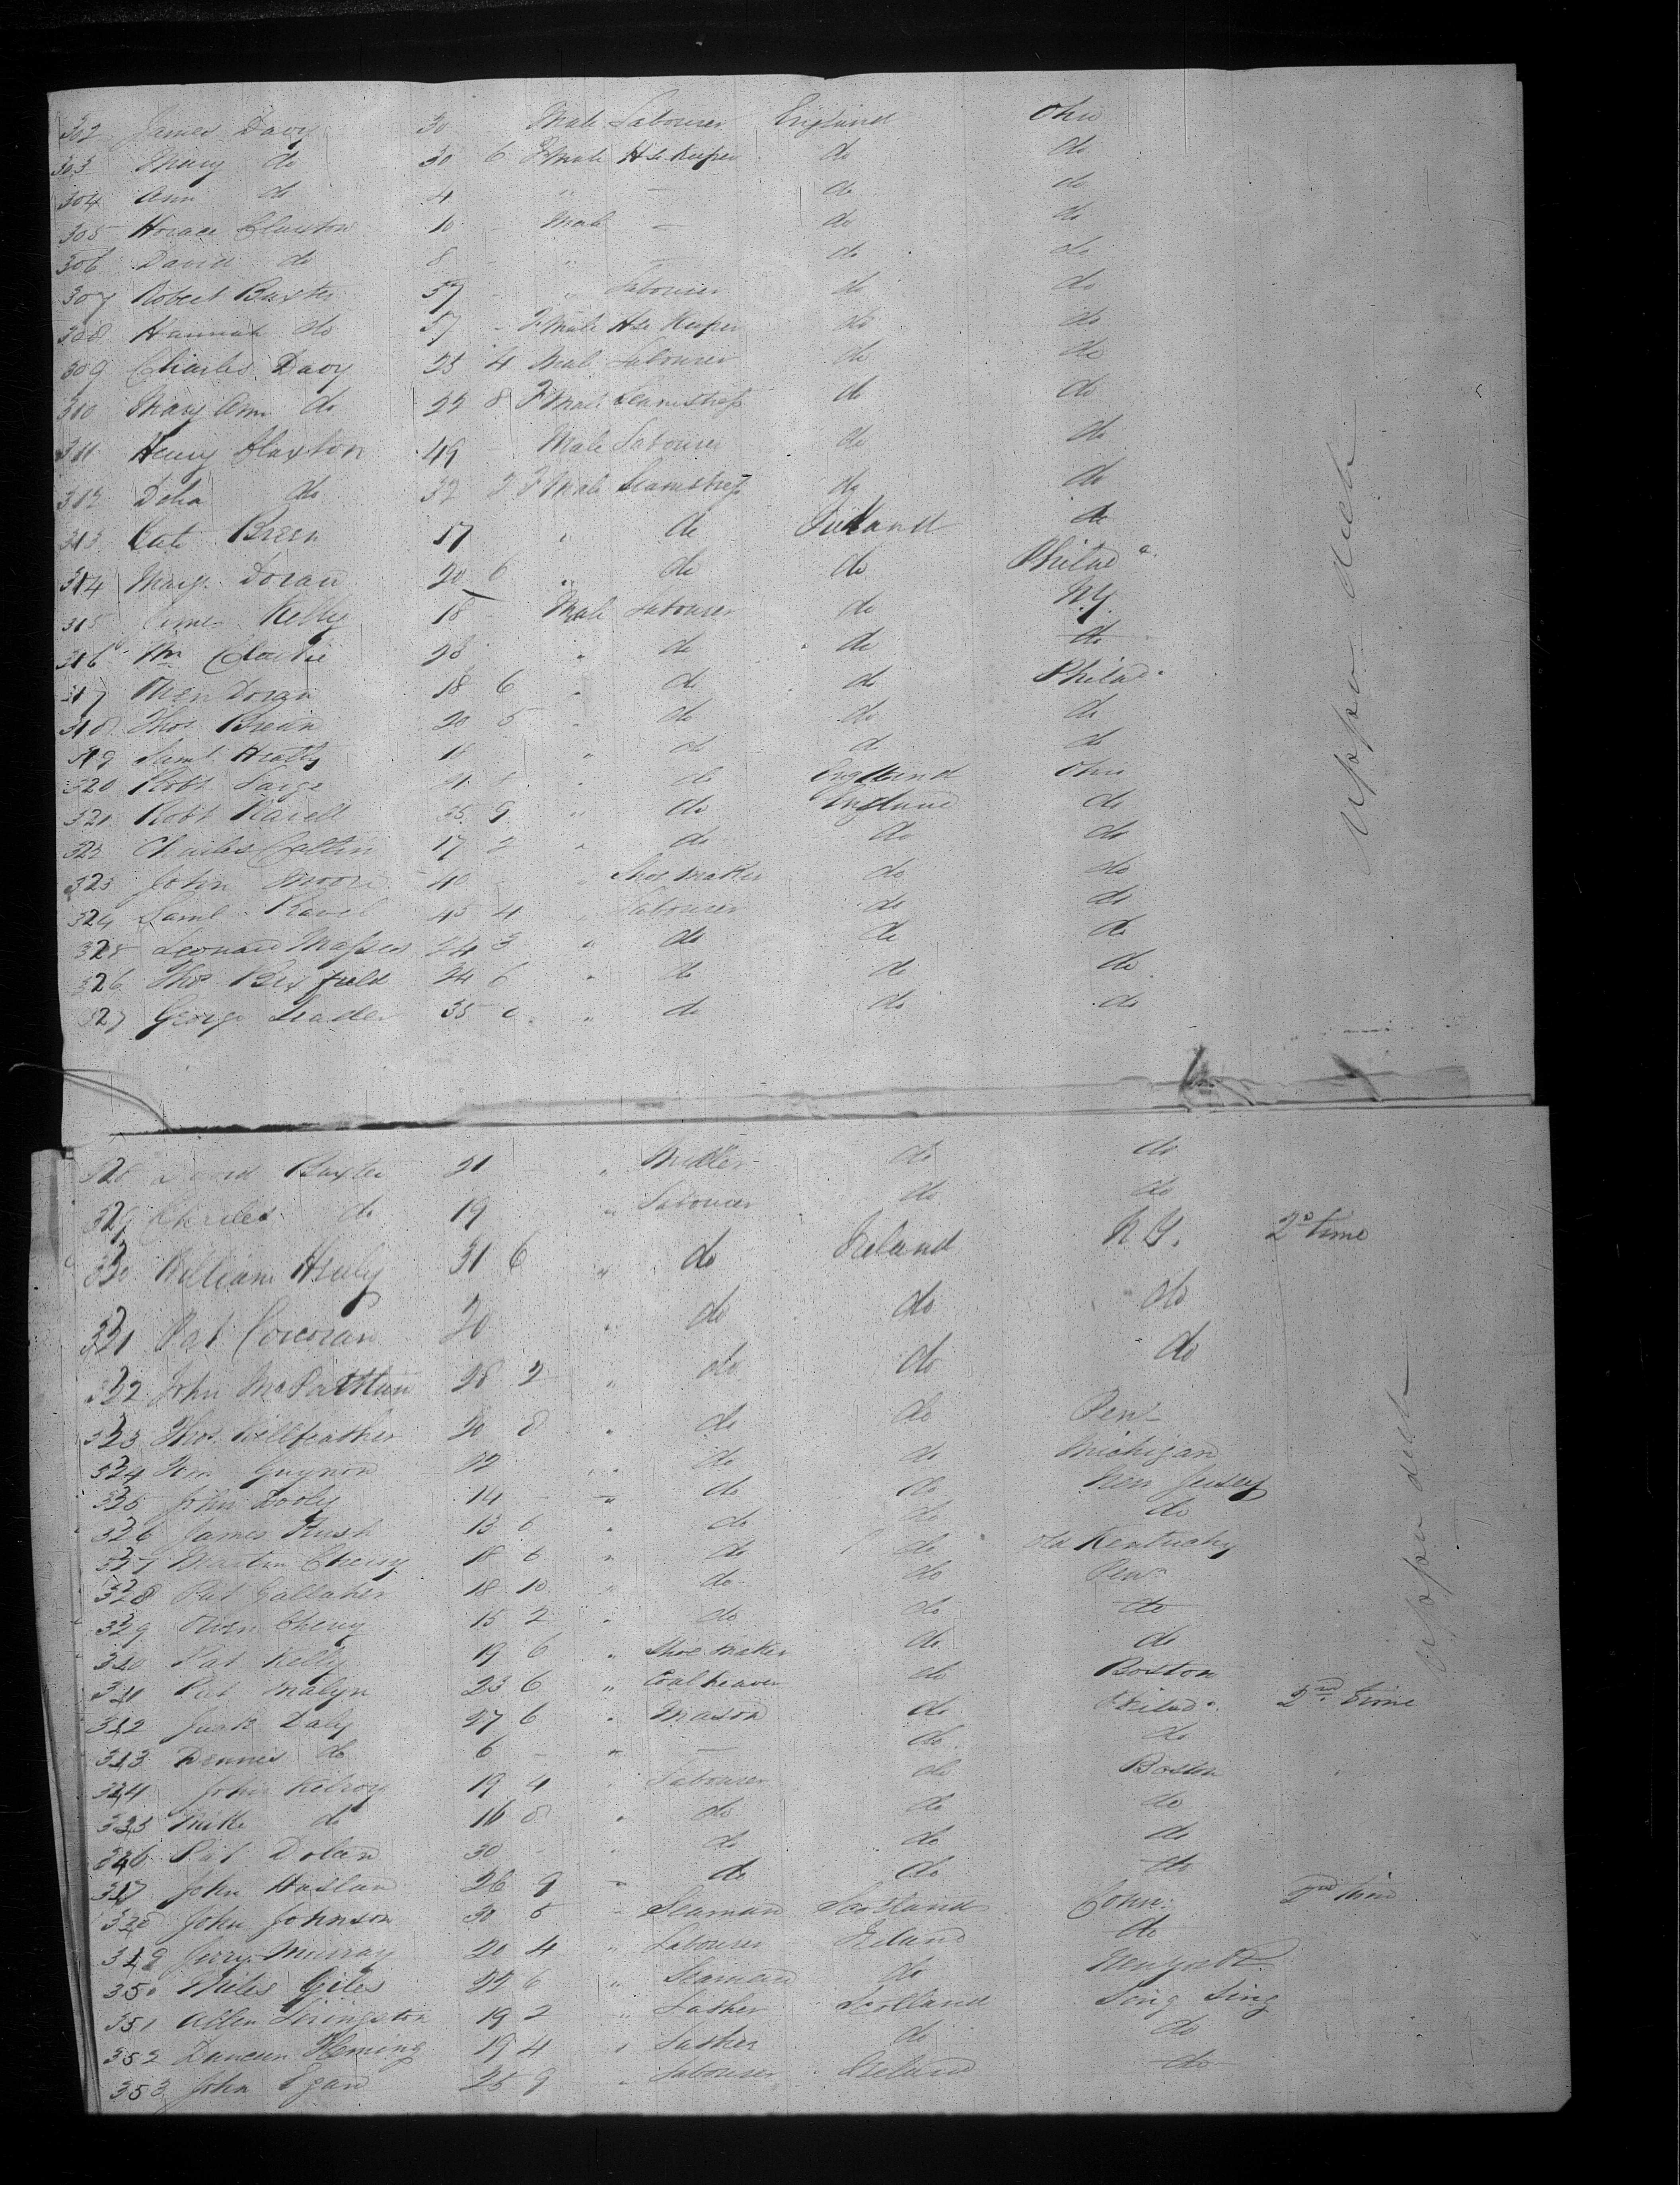 302 James Davy 30 Male Labourer England Ohio
303 Mary do 30 6 Fmale Hse Keeper do do
304 Ann do 4 " — do do
305 Horace Claxton 10 - Male — do do
306 David do 8 - " — do do
307 Robert Baxter 57 - " Labourer do do
308 Hannah do 57 - Fmale Hse Keeper do do
309 Charles Davy 25 4 Male Labourer do do
310 Mary Ann do 22 8 Fmale Seamstress do do
311 Henry Claxton 49 - Male Labourer do do
312 Delia do 32 2 Fmale Seamstress do do
313 Cate Breen 17 " do Ireland do
314 Margt Doran 20 6 " do do Philada
315 James Kelly 18 - Male Labourer do N.Y.
316 Wm 28 " do do do
317 Owen Doran 18 6 " do do Philada
318 Thos Breein 20 5 " do do do
319 Saml Heatly 18 " do do do
320 Robt Large " do England Ohio
321 Robt Ravell 35 9 " do England do
322 Charles Cattin 17 2 " do do do
323 John Moore 40 " Shoe maker do do
324 Saml Ravel 45 4 " Labourer do do
325 Leonard 24 3 " do do do
326 Thos Bexfield 24 6 " do do do
327 George Leader 35 " do do do
Upper deck
328 David Baxter 21 - " Miller do do
329 Charles do 19 " Labourer do do
330 William Healy 31 6 " do Ireland N.Y. 2d time
331 Pat Corcoran 20 " do do do
332 John McPartlan 28 2 " do do do
333 Thos Killfeather 20 8 " do do Pena
334 Wm Guynon " do do Michigan
335 John Dooly 14 " do do New Jersey
336 James Rush 13 6 " do do do
337 Martin Cheevy 18 6 " do do Old Kentucky
338 Pat Gallaher 18 10 " do do Pena
339 Owen Cheevy 15 2 " do do do
340 Pat Kelly 19 6 " Shoe maker do do
341 Pat Malyn 23 6 " Coal heaver do Boston
342 Daly 27 6 " Mason do Philada 2nd time
343 Dennis do 6 - " — do do
344 John Kelroy 19 4 " Labourer do Boston
345 Mike do 16 8 " do do do
346 Pat Dolan 30 - " do do do
347 John Haslan 26 9 " do do do
348 John Johnson 30 5 " Seaman Scotland Conn. 2nd time
349 Jerry Murray 20 4 " Labourer Ireland do
350 Miles Giles 22 6 " Seaman do Newyork
351 Allen Livingston 19 2 " Lather Scotland Sing Sing
352 Duncan Fleming 19 4 " Lather do do
353 John Egan 25 9 " Labourer Ireland do
Upper deck